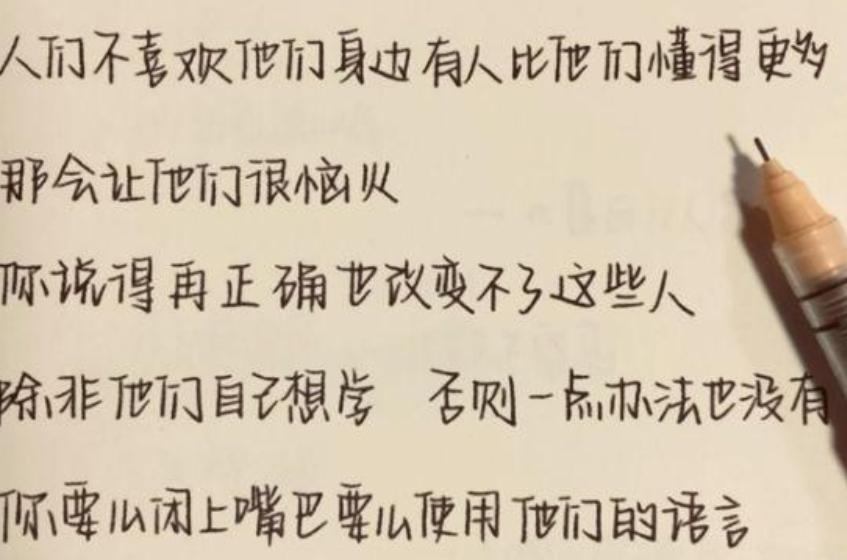 人们不喜欢他们身边有人比他们懂得更多
那会让他们很恼火
你说得再正确也改变不了这些人
除非他们自己想学 否则一点办法也没有
你要么闭上嘴巴要么使用他们的语言